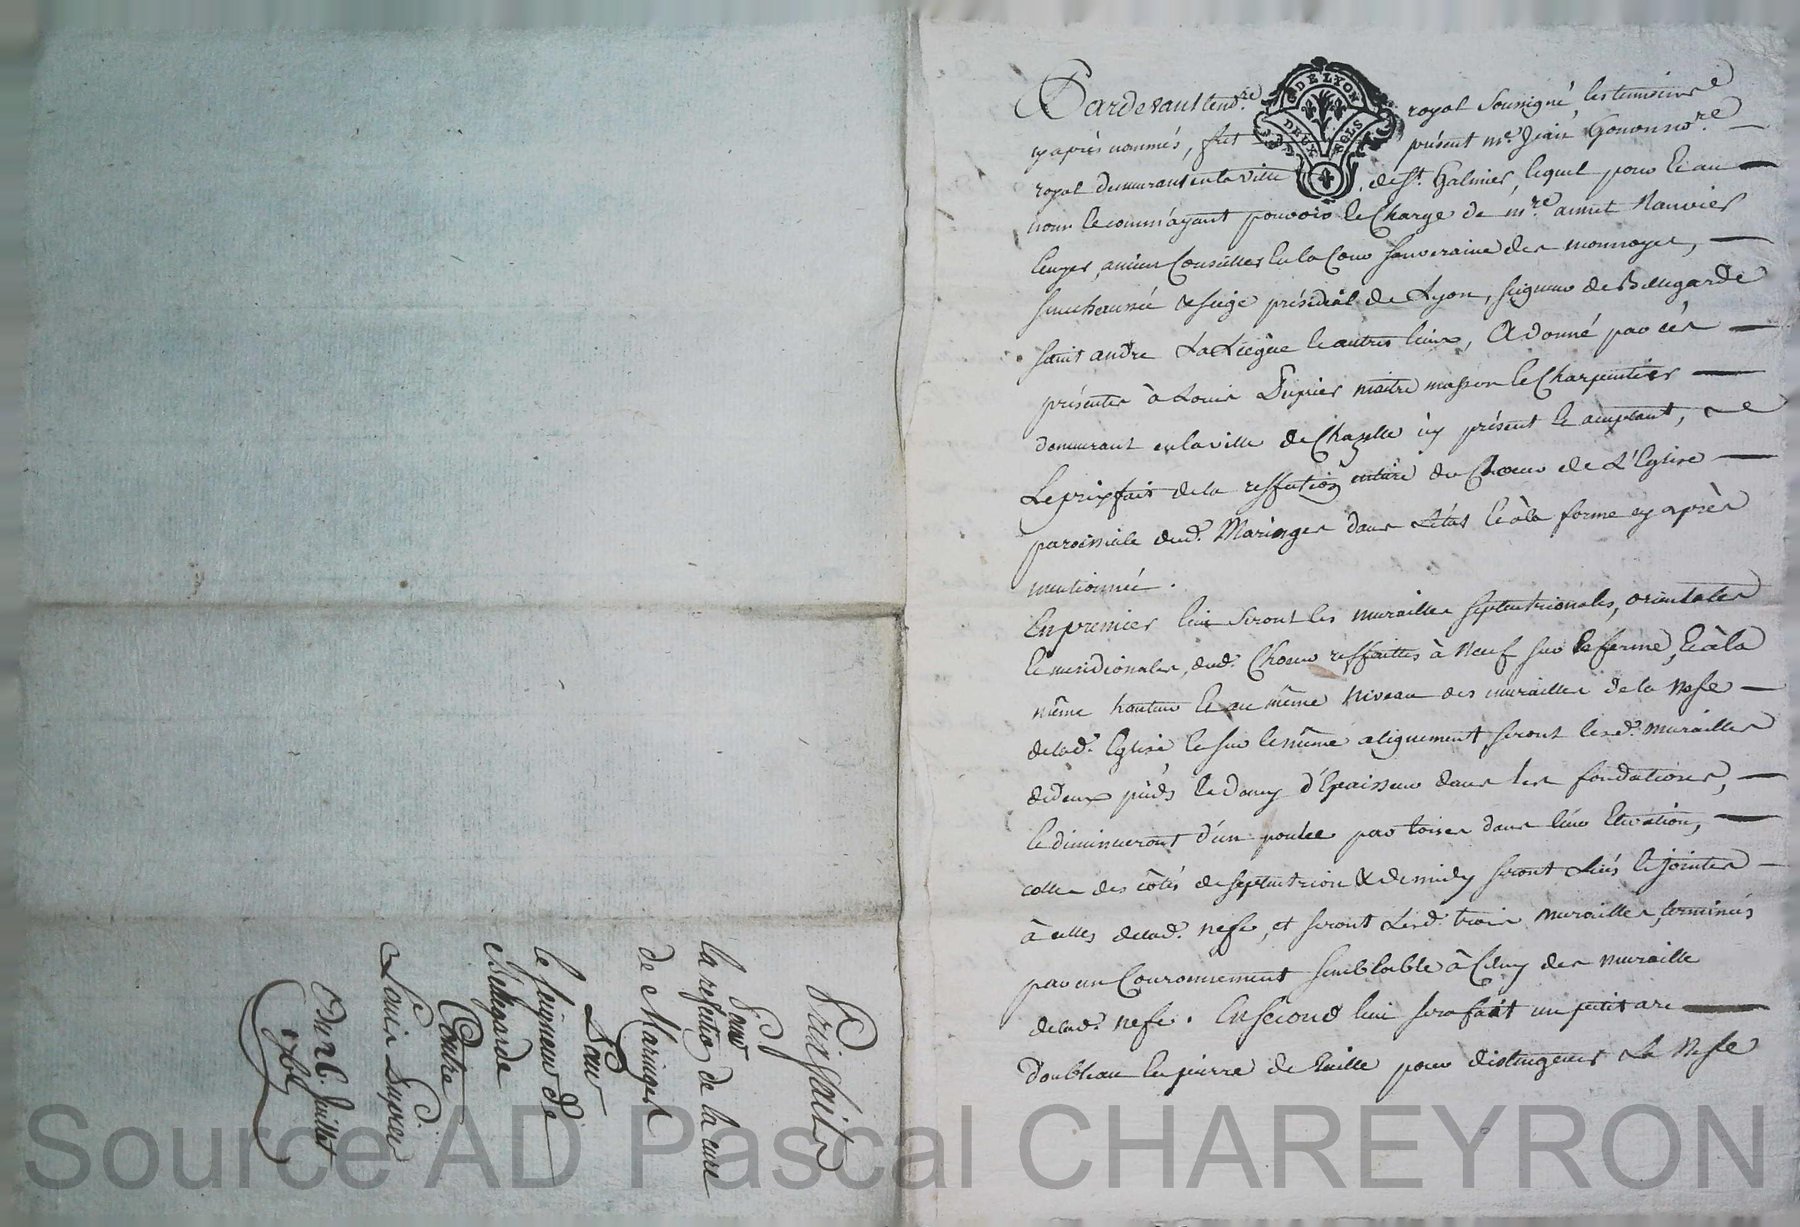 Prixfait
Pour
la refectio de la cure
de Maringes
Par
le seigneur de
Bellegarde
Contre
Louis Dupuer
Du 26 Juillet
Pardevant le nore royal soussigné, les temoins
cy après nommés, fut présent me. Jean Gonon nore.
royal demeurant en la ville de St. Galmier, lequel pour et au
nom et comm'ayant pouvoir et Charge de mre. annet Ranvier
Ecuyer, ancien Conseiller En la Cour souveraine des monnoyes,
senechaussée & siege présidial de Lyon, seigneur de Bellegarde
saint andré La Liegue et autres lieux, A donné par cés
présentes à Louis Dupuer maitre masson et Charpentier
demeurant en la ville de Chazelle icy présent et acceptant,
Le prixfait de la reffection entière du Choeur de L'Eglise
paroissiale dud. Maringes dans L'état et à la forme cy après
mentionnée.
En premier lieu seront les murailles septentrionales, orientales
et meridionales, dud. Choeur reffaittes à Neuf sur le ferme, et à la
même hauteur et au même niveau des murailles de la Nefe
de lad. Eglise et sur le même alignement, seront lesd. murailles
de deux pieds et demy d'Epaisseur dans les fondations,
et diminueront d'un poulce par toises dans leur Elevation,
celles des côtés de septentrion & de midy seront Liés et jointes
à celles de lad. nefe, et seront Lesd. trois murailles, terminés
par un Couronnement semblable à Celuy des muraille
de lad. nefe. En second lieu sera fait un petit arc
doubleau en pierre de taille pour distinguer La Nefe
DE LYON
DEUX SOLS
Source AD Pascal CHAREYRON